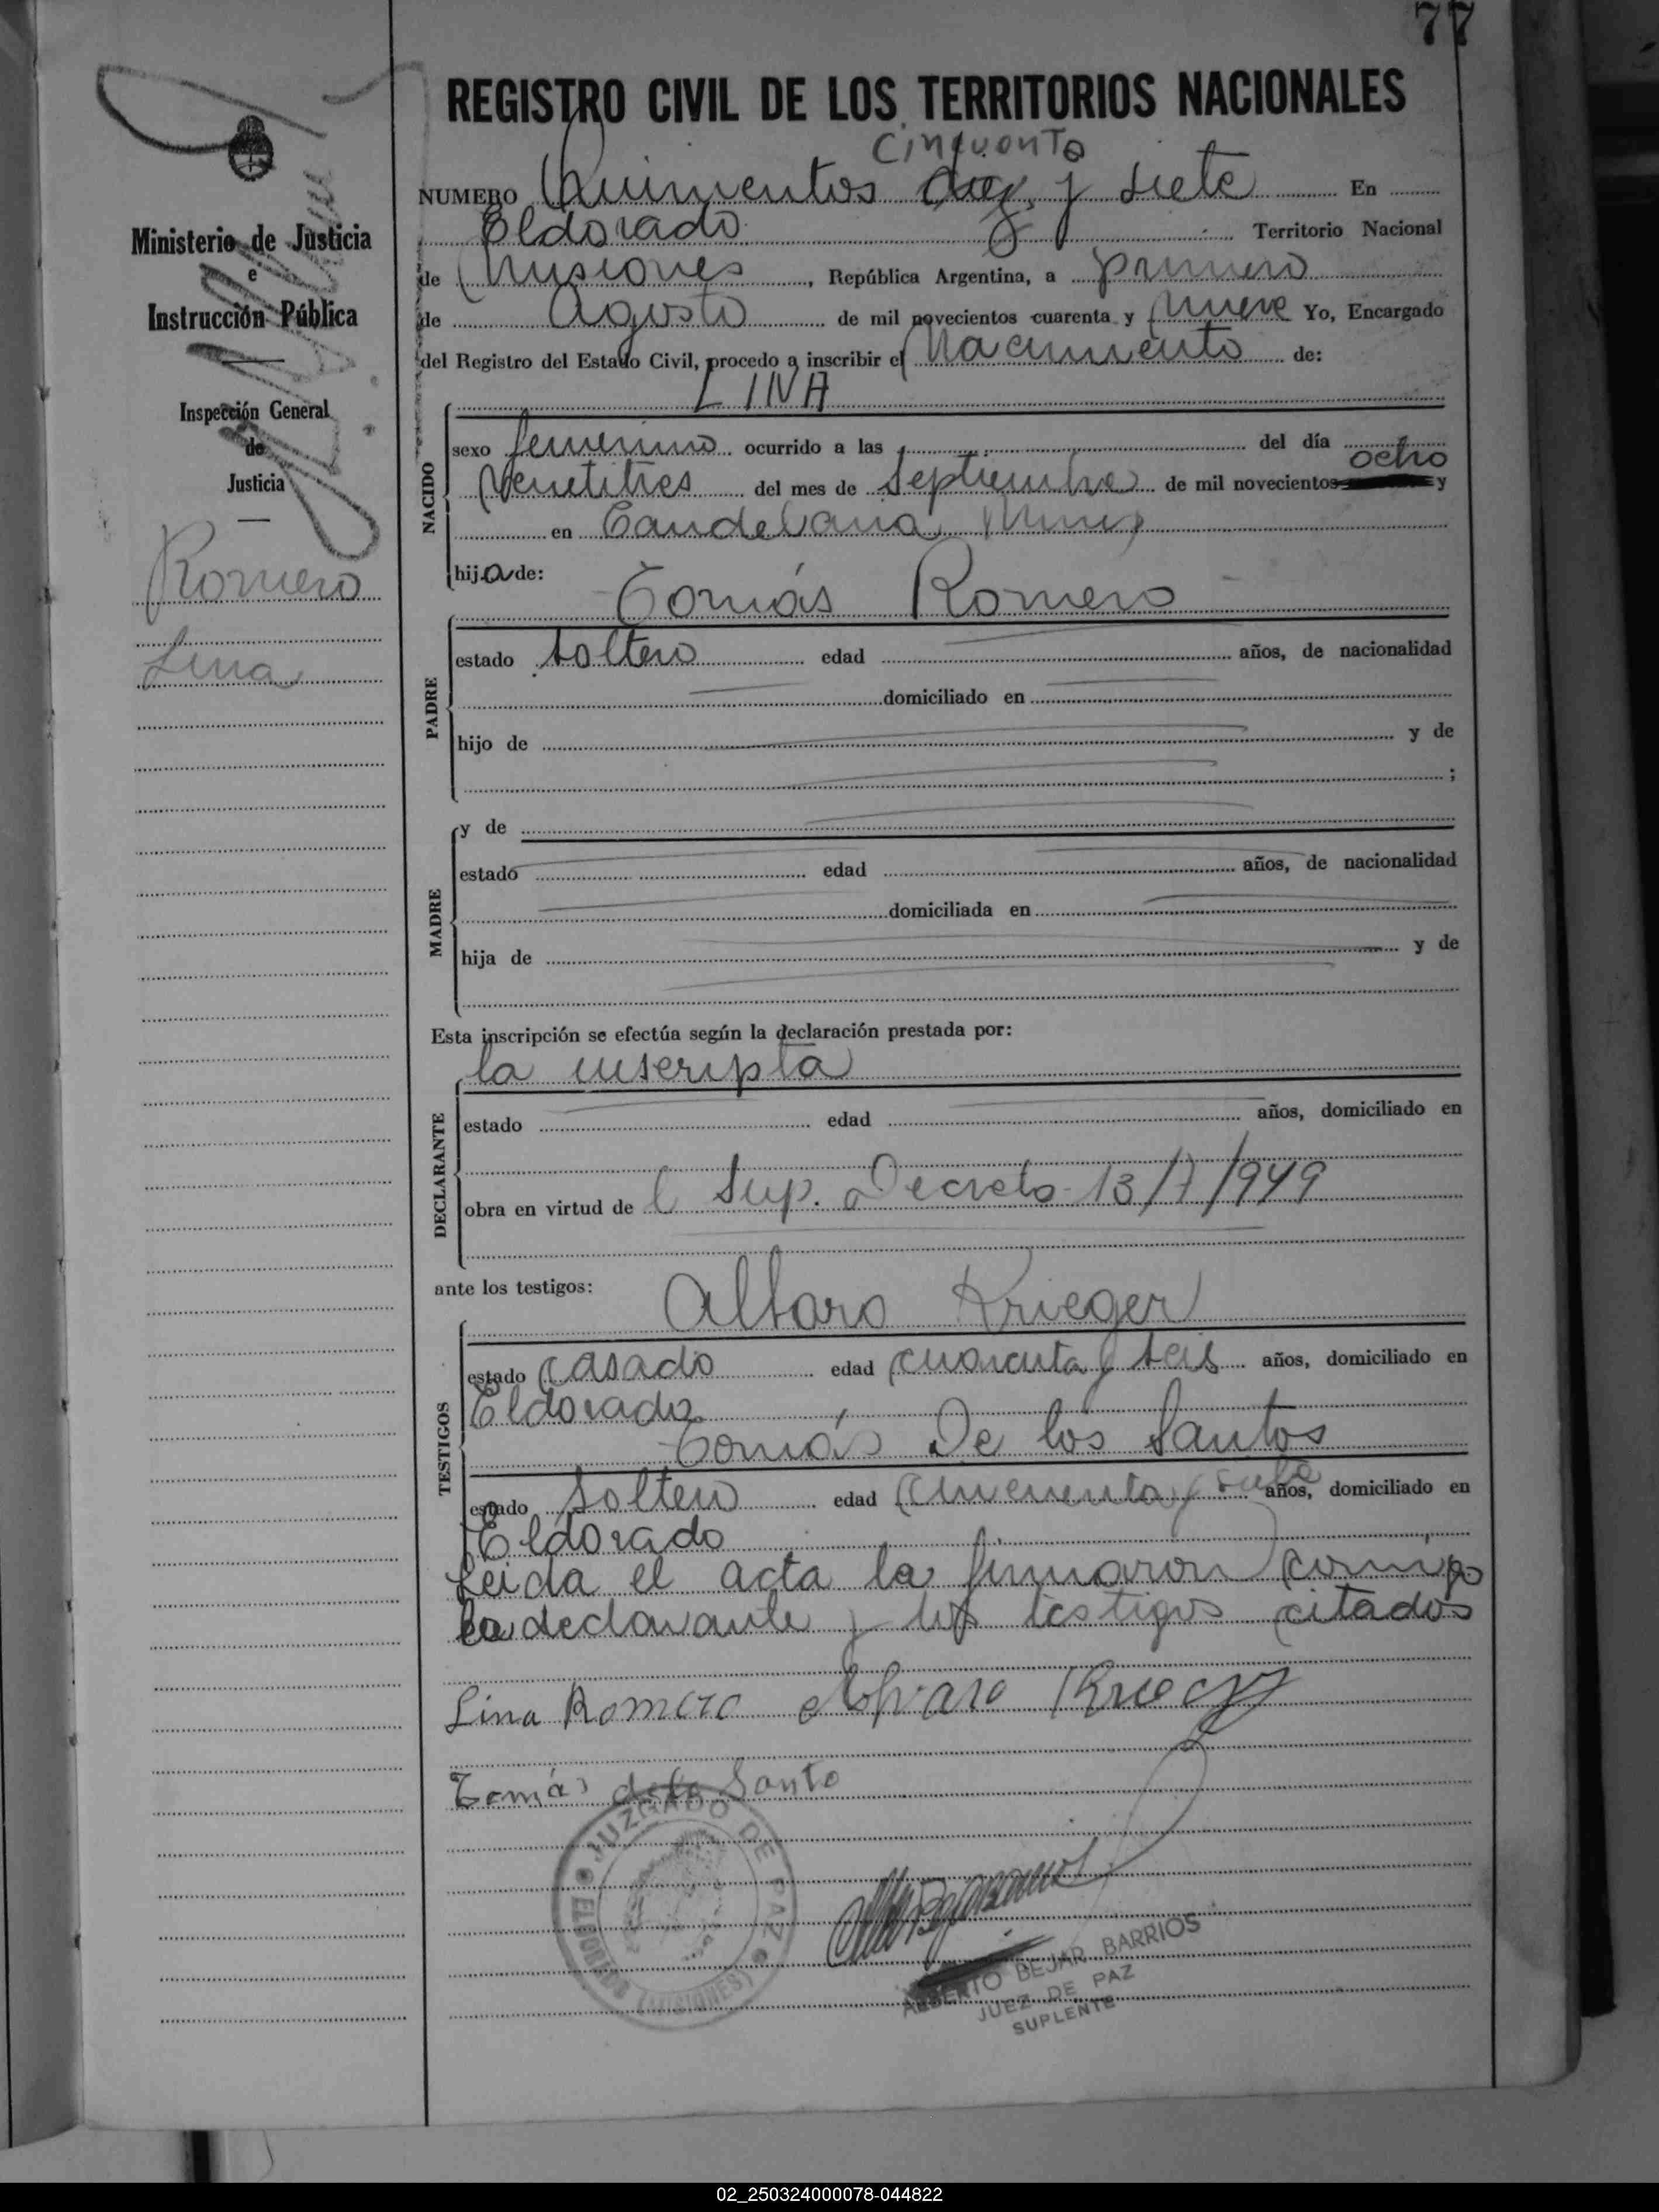 77
REGISTRO CIVIL DE LOS TERRITORIOS NACIONALES
cincuenta
NUMERO Quinientos diez y siete En
Eldorado Territorio Nacional
de Misiones, República Argentina, a primero
de Agosto de mil novecientos cuarenta y nueve Yo, Encargado
del Registro del Estado Civil, procedo a inscribir el Nacimiento de:
LINA
NACIDO
sexo femenino ocurrido a las del día
ocho
Veintitres del mes de Septiembre de mil novecientos y
en Candelaria Mnes
hija de:
Tomás Romero
PADRE
estado soltero edad años, de nacionalidad
domiciliado en
hijo de y de
;
MADRE
y de
estado edad años, de nacionalidad
domiciliada en
hija de y de
Esta inscripción se efectúa según la declaración prestada por:
la inscripta
DECLARANTE
estado edad años, domiciliado en
obra en virtud de l Sup. Decreto 13/7/949
ante los testigos:
Alvaro Krieger
TESTIGOS
estado casado edad cuarenta y seis años, domiciliado en
Eldorado
Tomás De los Santos
estado soltero edad cincuenta y años, domiciliado en
Eldorado
Leida el acta la firmaron conmigo
la declarante y los testigos citados
Lina Romero Alvaro Krieger
Tomás de lo Santo
JUZGADO DE PAZ
ELDORADO (MISIONES)
ALBERTO BEJAR BARRIOS
JUEZ DE PAZ
SUPLENTE
Ministerio de Justicia
e
Instrucción Pública
Inspección General
de
Justicia
Romero
Lina
02_250324000078-044822